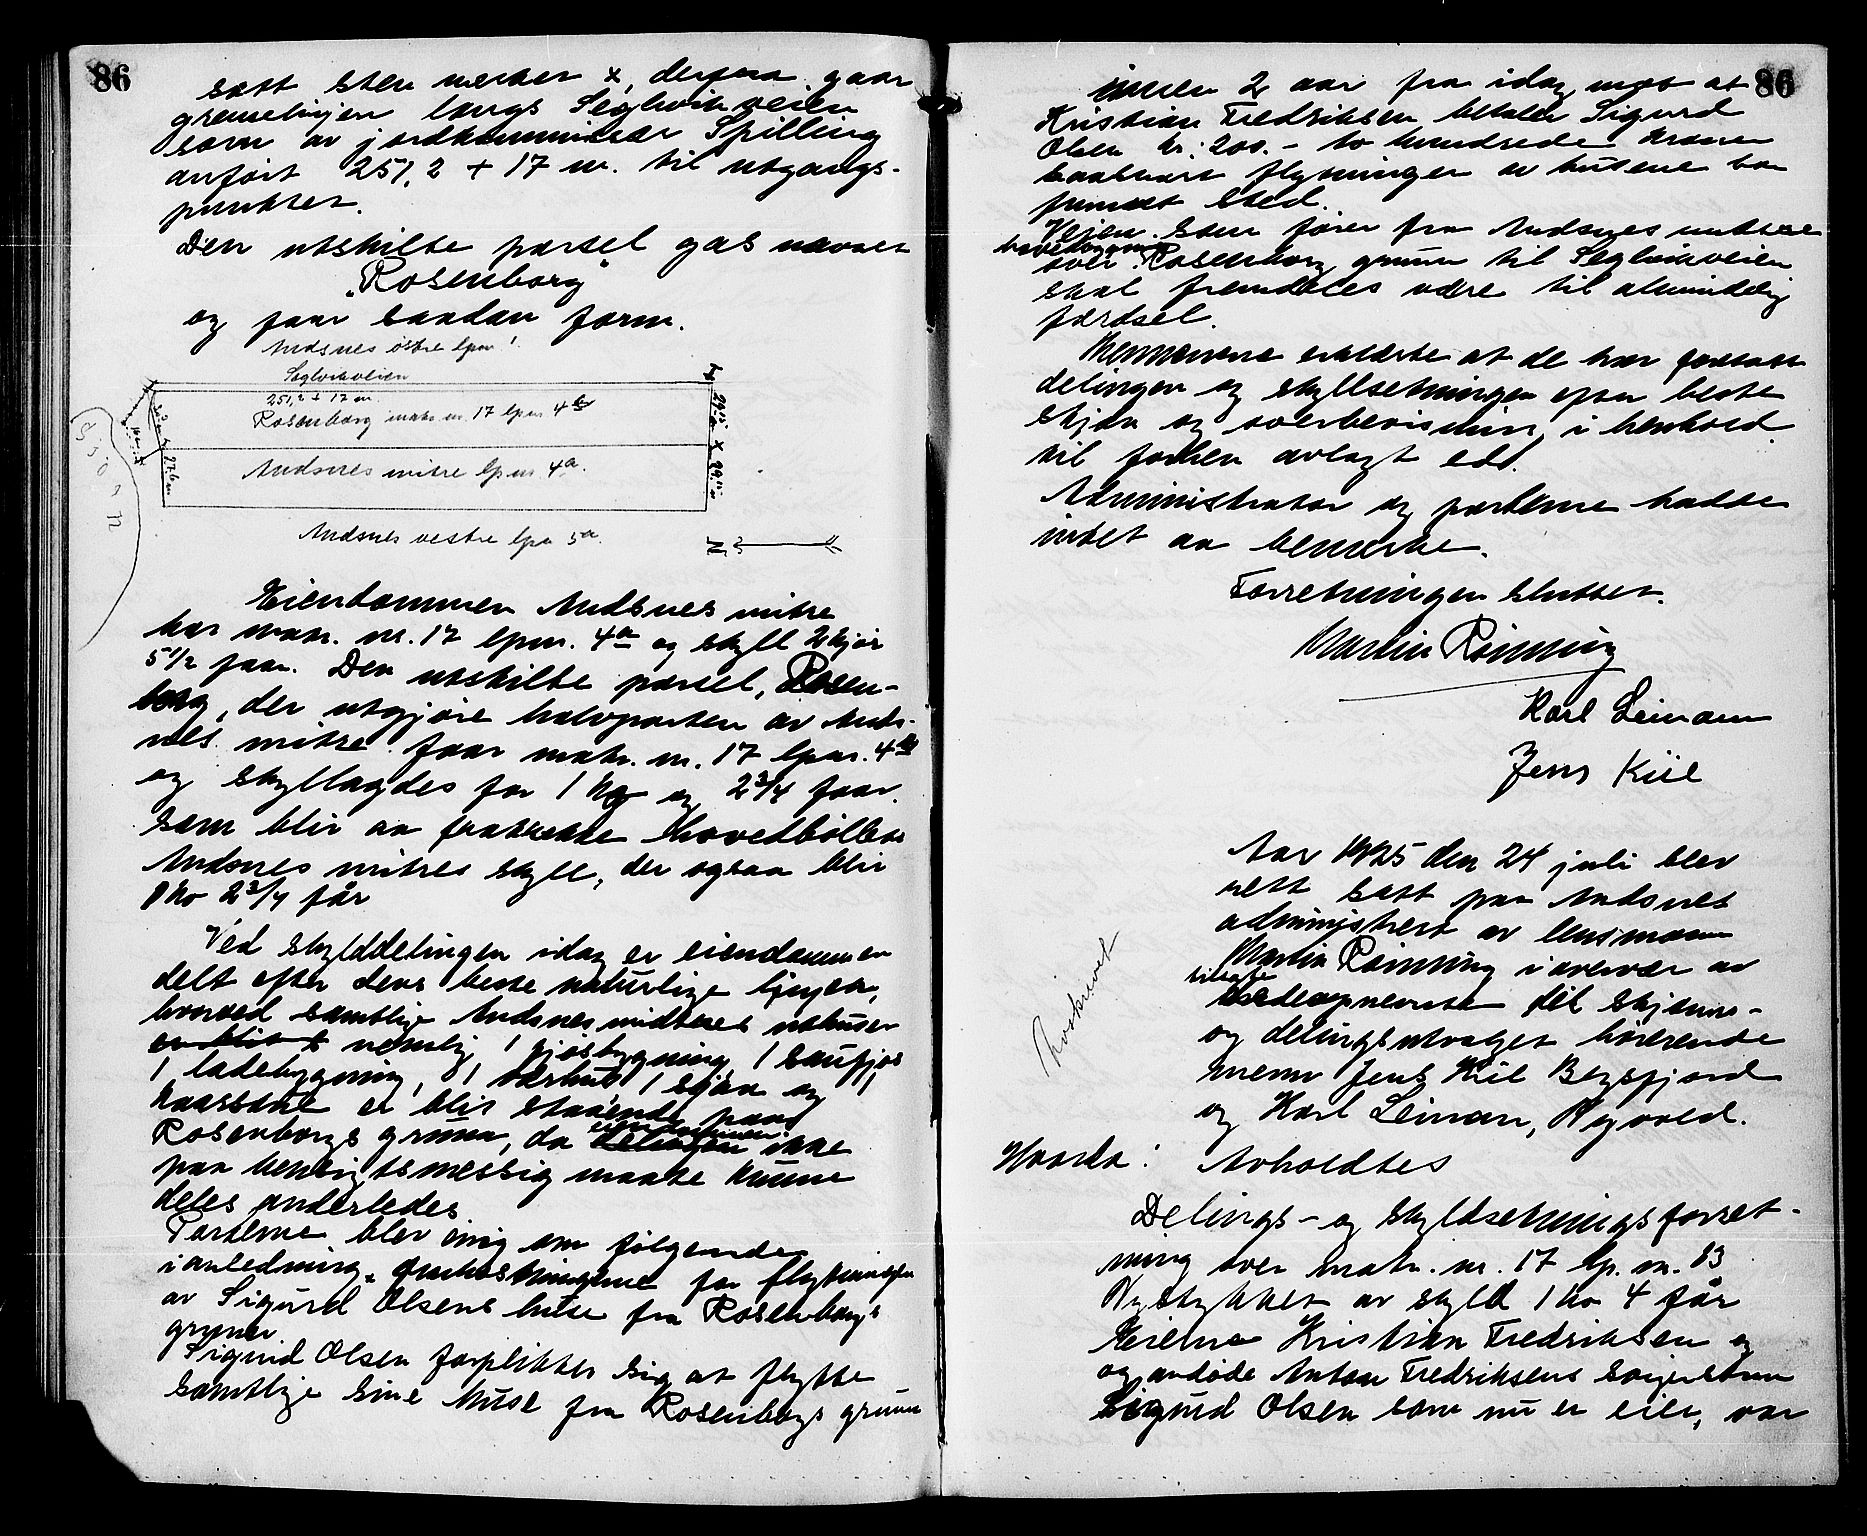 86
satt sten merket x, derfra gaar
grenselinjen langs Seglvikveien
som av jordkommissær Spilling
anført 251,2 + 17 m. til utgangs-
punktet.
Den utskilte parsel gas navnet
"Rosenborg"
og faar saadan form.
Andsnes østre lpnr 1.
Seglvikveien
251,2 + 17 m.
Rosenborg matr. nr. 17 lpnr. 4b
Andsnes mitre lpnr. 4a.
Andsnes vestre lpn 5a.
N
Sjøen
Eiendommen Andsnes mitre
har matr. nr. 17 lpnr. 4a og skyll 2 kjør
5 1/2 faar. Den utskilte parsel, Rosen-
borg, der utgjøre halvparten av Ands-
nes mitre faar matr. nr. 17 lpnr. 4b
og skyllagdes for 1 ko og 2 3/4 faar.
som blir aa fratrekke Hovedbøllets
Andsnes mitres skyll, der ogsaa blir
1 ko 2 3/4 får
Ved skylddelingen idag er eiendommen
delt efter dens beste naturlige linjer,
hvorved samtlige Andsnes midtres uthuser
nemlig 1 fjøsbygning, 1 saufjøs
1 ladebygning, 1 tørhus 1 sjaa og
naasstne er blit staaende paa
Rosenborgs grunn, da eiendommen ikke
paa hensigtsmessig maate kunne
deles anderledes
Parterne blev enig om følgende
i anledning omkostningene for flytningen
av Sigurd Olsens huse fra Rosenborgs
grunn.
Sigurd Olsen forplikter sig at flytte
samtlige sine huse fra Rosenborgs grunn
86
innen 2 aar fra idag mot at
Kristian Fredriksen betaler Sigurd
Olsen kr: 200.- to hundrede kroner
saasnart flytningen av husene har
funnet sted.
Veien som fører fra Andsnes mittre
hovedbygning
over Rosenborg grunn til Seglvikveien
skal fremdeles være til almindelig
færdsel.
Mennerne erklærte at de har foretatt
delingen og skyllsetningen efter beste
skjøn og overbevisning, i henhold
til forhen avlagt ed.
Administrator og parterne hadde
intet aa bemerke.
Forretningen sluttet.
Martin Rønning
Karl Leiman
Jens Kiil
Aar 1925 den 24 juli blev
rett satt paa Andsnes
administrert av lensmann
Martin Rønning i overvær av
de opnevnte til skjønns-
og delingsutvalget hørerende
menn Jens Kiil Bergfjord
og Karl Leiman, Nyvoll.
Hvorda: Avholdtes
Delings- og skyldsetningsforret-
ning over matr. nr. 17 lp. nr. 13
Nystykket av skyld 1 ko 4 får
Eierne Kristian Fredriksen og
og avdøde Anton Fredriksens svigersønn
Sigurd Olsen som nu er eier, var